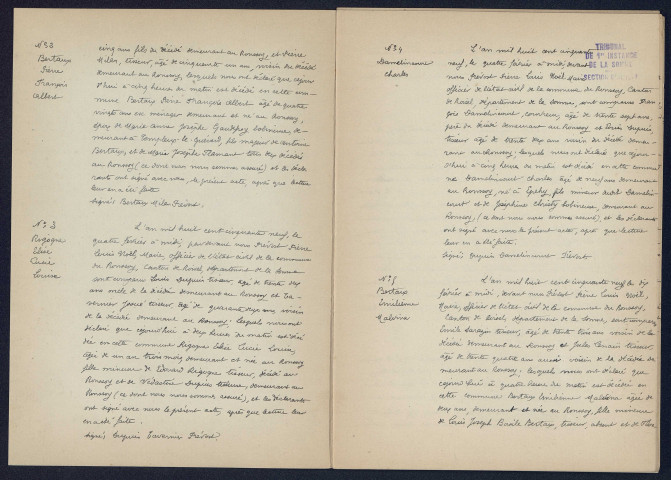 N° 2
Bertaux
Pierre
François
Albert
cinq ans fils du décédé demeurant au Ronssoy, et Pierre
Miles, tisseur, âgé de cinquante un ans, voisin du décédé
demeurant au Ronssoy, lesquels nous ont déclaré que cejour
d'hui à cinq heures du matin est décédé en cette com-
mune Bertaux Pierre François Albert âgé de quatre
vingts ans ménager demeurant et né au Ronssoy,
époux de Marie Anne Josèphe
meurant à Templeux-le-Guérard, fils majeur de Antoine
Bertaux, et de Marie Josèphe Flamant tous deux décédés
au Ronssoy (ce dont nous nous sommes assuré) et les décla-
rants ont signé avec nous le présent acte, après que lecture
leur en a été faite
signés Bertaux Miles Prévost.
N° 3
Rigogne
Elise
Lucie
Louise
L'an mil huit cent cinquante neuf, le
quatre février à midi, par devant nous Prévost Pierre
Louis Noël, Maire, officier de l'état-civil de la commune
du Ronssoy, Canton de Roisel, département de la Somme
sont comparus Louis Dupuis tisseur, âgé de trente six
ans oncle de la décédée demeurant au Ronssoy et Ta-
vernier Josué tisseur âgé de quarante deux ans voisin
de la décédée demeurant au Ronssoy, lesquels nous ont
déclaré que cejourd'hui à deux heures du matin est décé-
dée en cette commune Rigogne Elise Lucie Louise,
âgée de un an trois mois demeurant et née au Ronssoy
fille mineure de Edouard Rigogne tisseur, décédé au
Ronssoy et de Dupuis tisseuse, demeurant au
Ronssoy (ce dont nous nous sommes assuré), et les déclarants
ont signé avec nous le présent acte, après que lecture leur
en a été faite.
signés Dupuis Tavernier Prévost.
N° 4
Damelincourt
Charles
L'an mil huit cent cinquante
neuf, le quatre février à midi, devant
nous Prévost Pierre Louis Noël, Maire
officier de l'état-civil de la commune du Ronssoy, Canton
de Roisel, département de la Somme, sont comparus Fran-
çois Damelincourt, cordonnier, âgé de trente sept ans,
père du décédé demeurant au Ronssoy et Louis Dupuis
tisseur âgé de trente six ans voisin du décédé demeu-
rant au Ronssoy, lesquels nous ont déclaré que cejour-
d'hui à cinq heures du matin est décédé en cette commu-
ne Damelincourt Charles âgé de neuf ans demeurant
au Ronssoy, né à Epehy, fils mineur dudit Damelin-
court et de Joséphine Christy bobineuse, demeurant au
Ronssoy, (ce dont nous nous sommes assuré), et les déclarants
ont signé avec nous le présent acte, après que lecture
leur en a été faite.
signés Dupuis Damelincourt Prévost.
TRIBUNAL
DE 1re INSTANCE
DE LA SOMME
SECTION
N° 5
Bertaux
Emilienne
Malvina
L'an mil huit cent cinquante neuf, le dix
février à midi, devant nous Prévost, Pierre Louis Noël,
Maire, officier de l'état-civil de la commune du Ronssoy,
Canton de Roisel, département de la Somme, sont comparus
Emile tisseur, âgé de trente trois ans voisin de la
décédée demeurant au Ronssoy et Jules tisseur,
âgé de trente quatre ans aussi voisin de la décédée de-
meurant au Ronssoy, lesquels nous ont déclaré que
cejourd'hui à quatre heures du matin est décédée en
cette commune Bertaux Emilienne Malvina âgée de
deux ans, demeurant et née au Ronssoy, fille mineure
de Louis Joseph Basile Bertaux, tisseur, absent et de